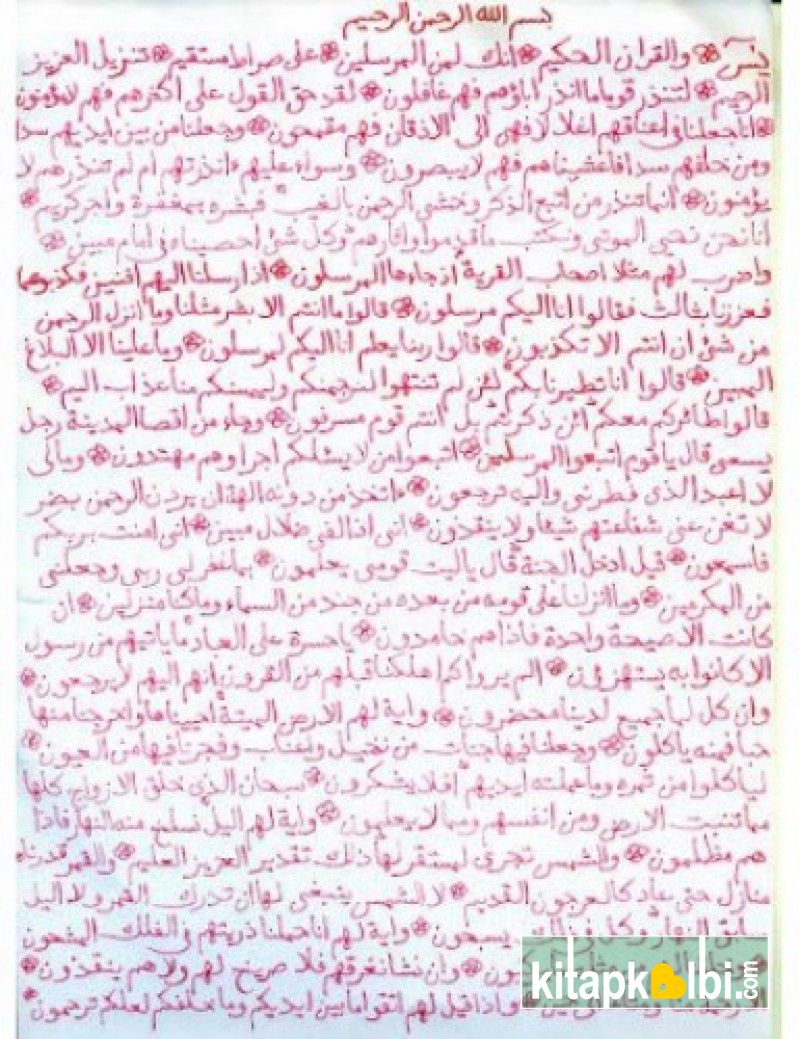 بسم الله الرحمن الرحيم
يس ۞ والقران الحكيم ۞ انك لمن المرسلين ۞ على صراط مستقيم ۞ تنزيل العزيز
الرحيم ۞ لتنذر قوما ما انذر اباؤهم فهم غافلون ۞ لقد حق القول على اكثرهم فهم لا يؤمنون
۞ انا جعلنا فى اعناقهم اغلالا فهى الى الاذقان فهم مقمحون ۞ وجعلنا من بين ايديهم سدا
ومن خلفهم سدا فاغشيناهم فهم لا يبصرون ۞ وسواء عليهم ءانذرتهم ام لم تنذرهم لا
يؤمنون ۞ انما تنذر من اتبع الذكر وخشي الرحمن بالغيب فبشره بمغفرة واجر كريم ۞
انا نحن نحيي الموتى ونكتب ما قدموا واثارهم وكل شئ احصيناه فى امام مبين ۞
واضرب لهم مثلا اصحاب القرية اذ جاءها المرسلون ۞ اذ ارسلنا اليهم اثنين فكذبوهما
فعززنا بثالث فقالوا انا اليكم مرسلون ۞ قالوا ما انتم الا بشر مثلنا وما انزل الرحمن
من شئ ان انتم الا تكذبون ۞ قالوا ربنا يعلم انا اليكم لمرسلون ۞ وما علينا الا البلاغ
المبين ۞ قالوا انا تطيرنا بكم لئن لم تنتهوا لنرجمنكم وليمسنكم منا عذاب اليم ۞
قالوا طائركم معكم ائن ذكرتم بل انتم قوم مسرفون ۞ وجاء من اقصا المدينة رجل
يسعى قال يا قوم اتبعوا المرسلين ۞ اتبعوا من لا يسئلكم اجرا وهم مهتدون ۞ ومالى
لا اعبد الذى فطرنى واليه ترجعون ۞ ءاتخذ من دونه الهة ان يردن الرحمن بضر
لا تغن عنى شفاعتهم شيئا ولا ينقذون ۞ انى اذا لفى ضلال مبين ۞ انى امنت بربكم
فاسمعون ۞ قيل ادخل الجنة قال ياليت قومى يعلمون ۞ بما غفر لى ربى وجعلنى
من المكرمين ۞ وما انزلنا على قومه من بعده من جند من السماء وما كنا منزلين ۞ ان
كانت الا صيحة واحدة فاذا هم خامدون ۞ يا حسرة على العباد ما ياتيهم من رسول
الا كانوا به يستهزؤن ۞ الم يروا كم اهلكنا قبلهم من القرون انهم اليهم لا يرجعون ۞
وان كل لما جميع لدينا محضرون ۞ واية لهم الارض الميتة احييناها واخرجنا منها
حبا فمنه ياكلون ۞ وجعلنا فيها جنات من نخيل واعناب وفجرنا فيها من العيون ۞
لياكلوا من ثمره وما عملته ايديهم افلا يشكرون ۞ سبحان الذي خلق الازواج كلها
مما تنبت الارض ومن انفسهم ومما لا يعلمون ۞ واية لهم اليل نسلخ منه النهار فاذا
هم مظلمون ۞ والشمس تجرى لمستقر لها ذلك تقدير العزيز العليم ۞ والقمر قدرناه
منازل حتى عاد كالعرجون القديم ۞ لا الشمس ينبغى لها ان تدرك القمر ولا اليل
سابق النهار وكل فى فلك يسبحون ۞ واية لهم انا حملنا ذريتهم فى الفلك المشحون
۞ ۞ وان نشا نغرقهم فلا صريخ لهم ولا هم ينقذون ۞
واذا قيل لهم اتقوا ما بين ايديكم وما خلفكم لعلكم ترحمون ۞
kitapkalbi.com